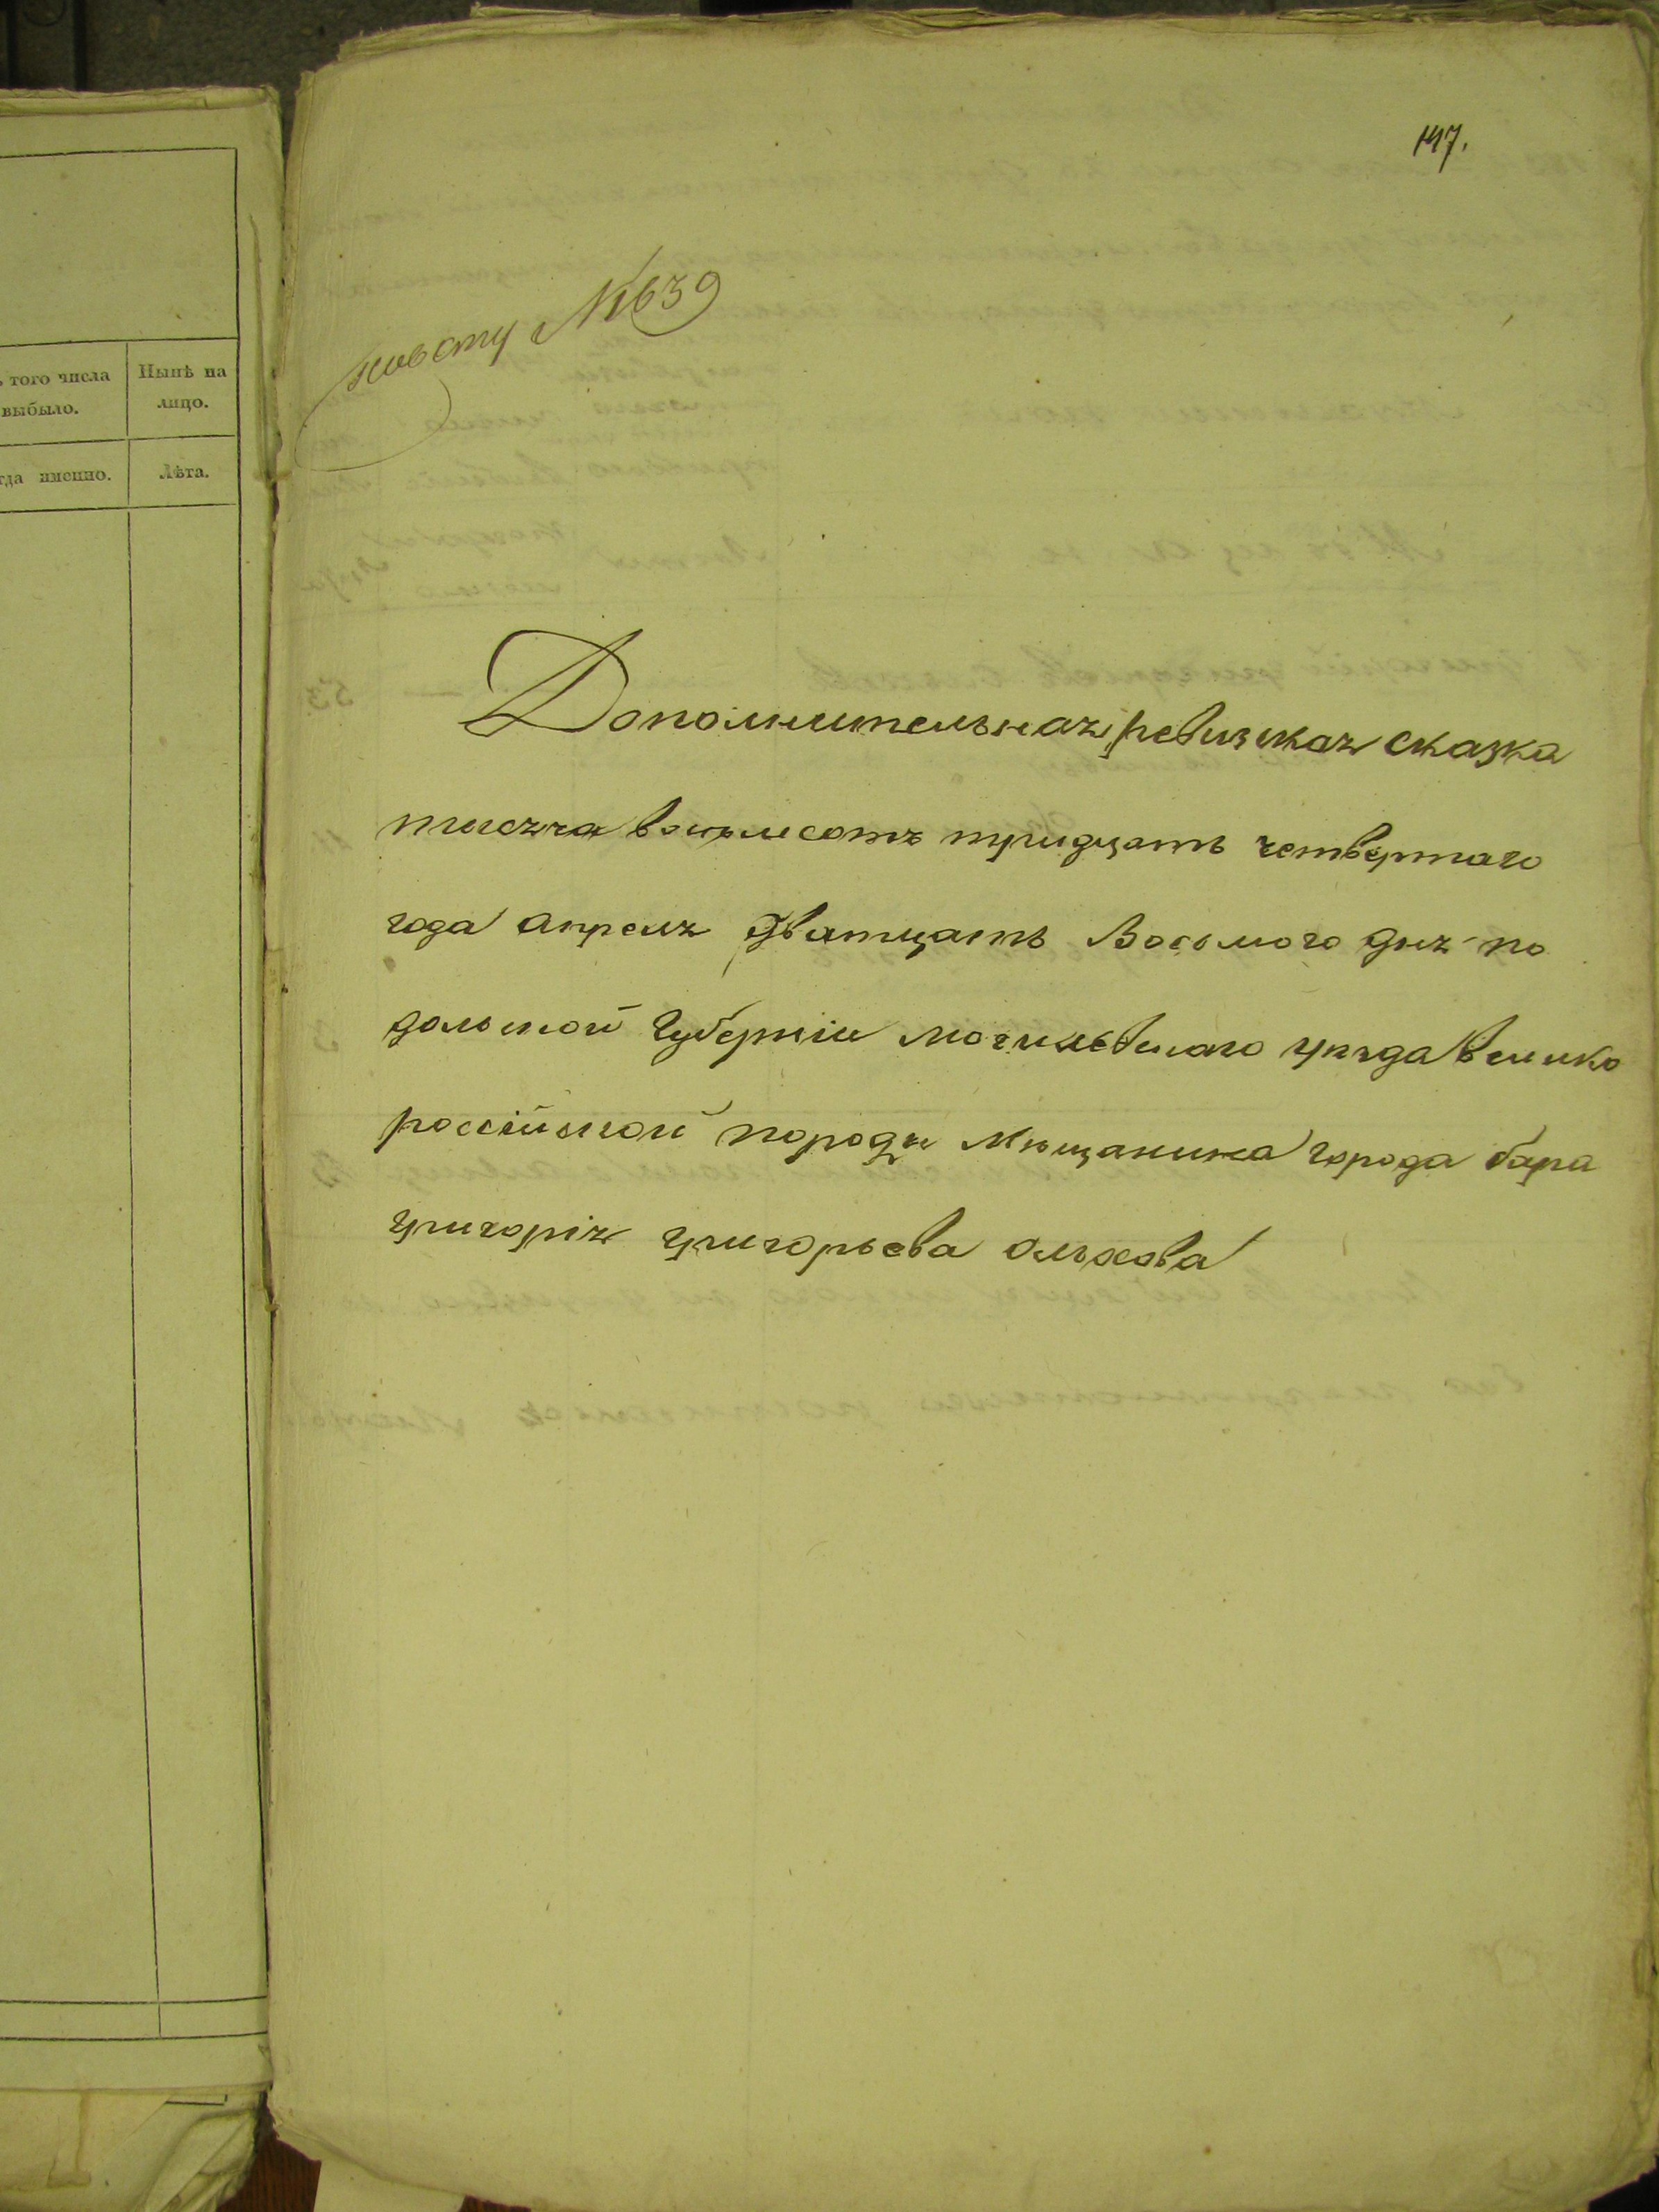 ъ того числа
выбыло.
Нынѣ на
лицо.
гда именно.
Лѣта.
147.
новому №639
Дополнительная ревизкая сказка
тысяча восьмсотъ тридцать четвертаго
года апреля дватцать Восьмого дня по
дольской Губерніи могилевскаго уѣзда велико
россійской породы мѣщанина города бара
григорія григорьева ольхова